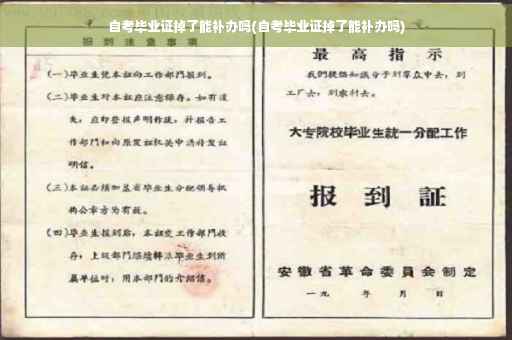 自考毕业证掉了能补办吗(自考毕业证掉了能补办吗)
报到注意事项
(一)毕业生凭本证向工作部门报到。
(二)毕业生对本证应注意保存。如有遗
失,应即登报声明作废,并报告工
作部门和向原发证机关申请补发证
明信。
(三)本证必须加盖省毕业生分配领导机
构公章方为有效。
(四)毕业生报到后,本证交工作部门收
存;上级部门
毕业生到所
属单位时,用本部门的介绍信。
最高指示
我们提倡知识分子到群众中去,到
工厂去,到农村去。
大专院校毕业生统一分配工作
报到证
安徽省革命委员会制定
一九 年 月 日